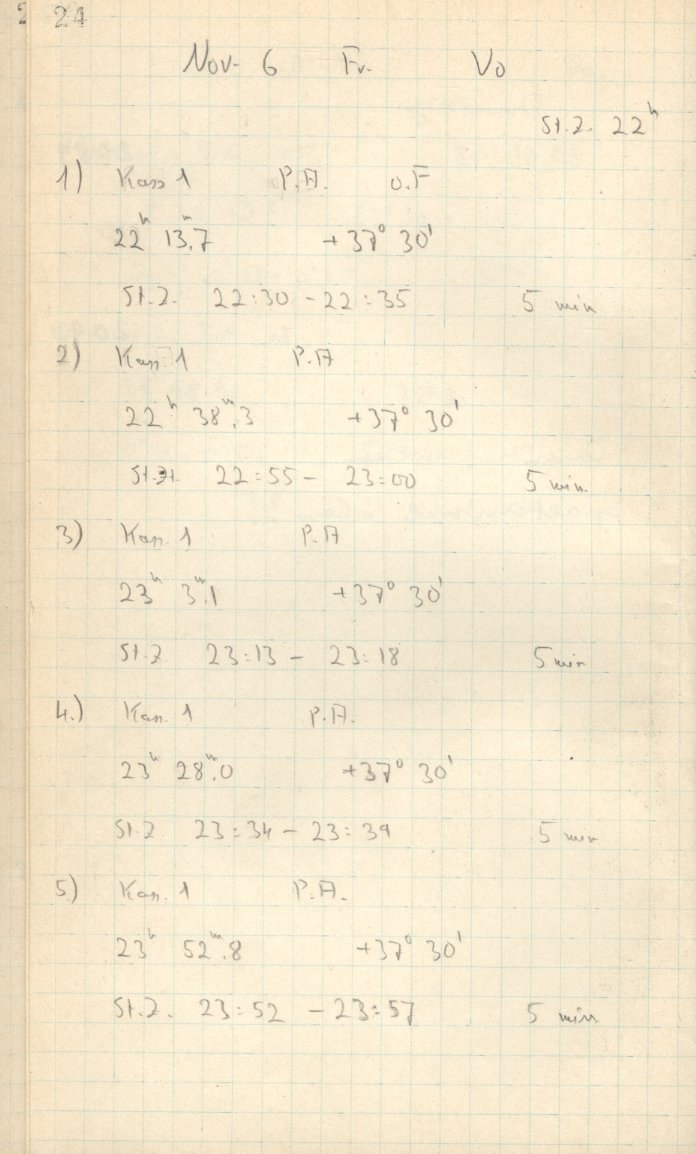 24
Nov. 6 Fr. Vo
St.Z. 22h
1) Kass 1 P.A. o.F
22h 13m.7 +37° 30'
St.Z. 22:30 - 22:35 5 min
2) Kass. 1 P.A
22h 38m.3 +37° 30'
22:55 - 23:00 5 min.
3) Kass. 1 P.A
23h 3m.1 +37° 30'
St.Z 23:13 - 23:18 5 min
4.) Kass. 1 P.A.
23h 28m.0 +37° 30'
St.Z 23:34 - 23:39 5 min
5) Kass. 1 P.A.
23h 52m.8 +37° 30'
St.Z. 23:52 - 23:57 5 min